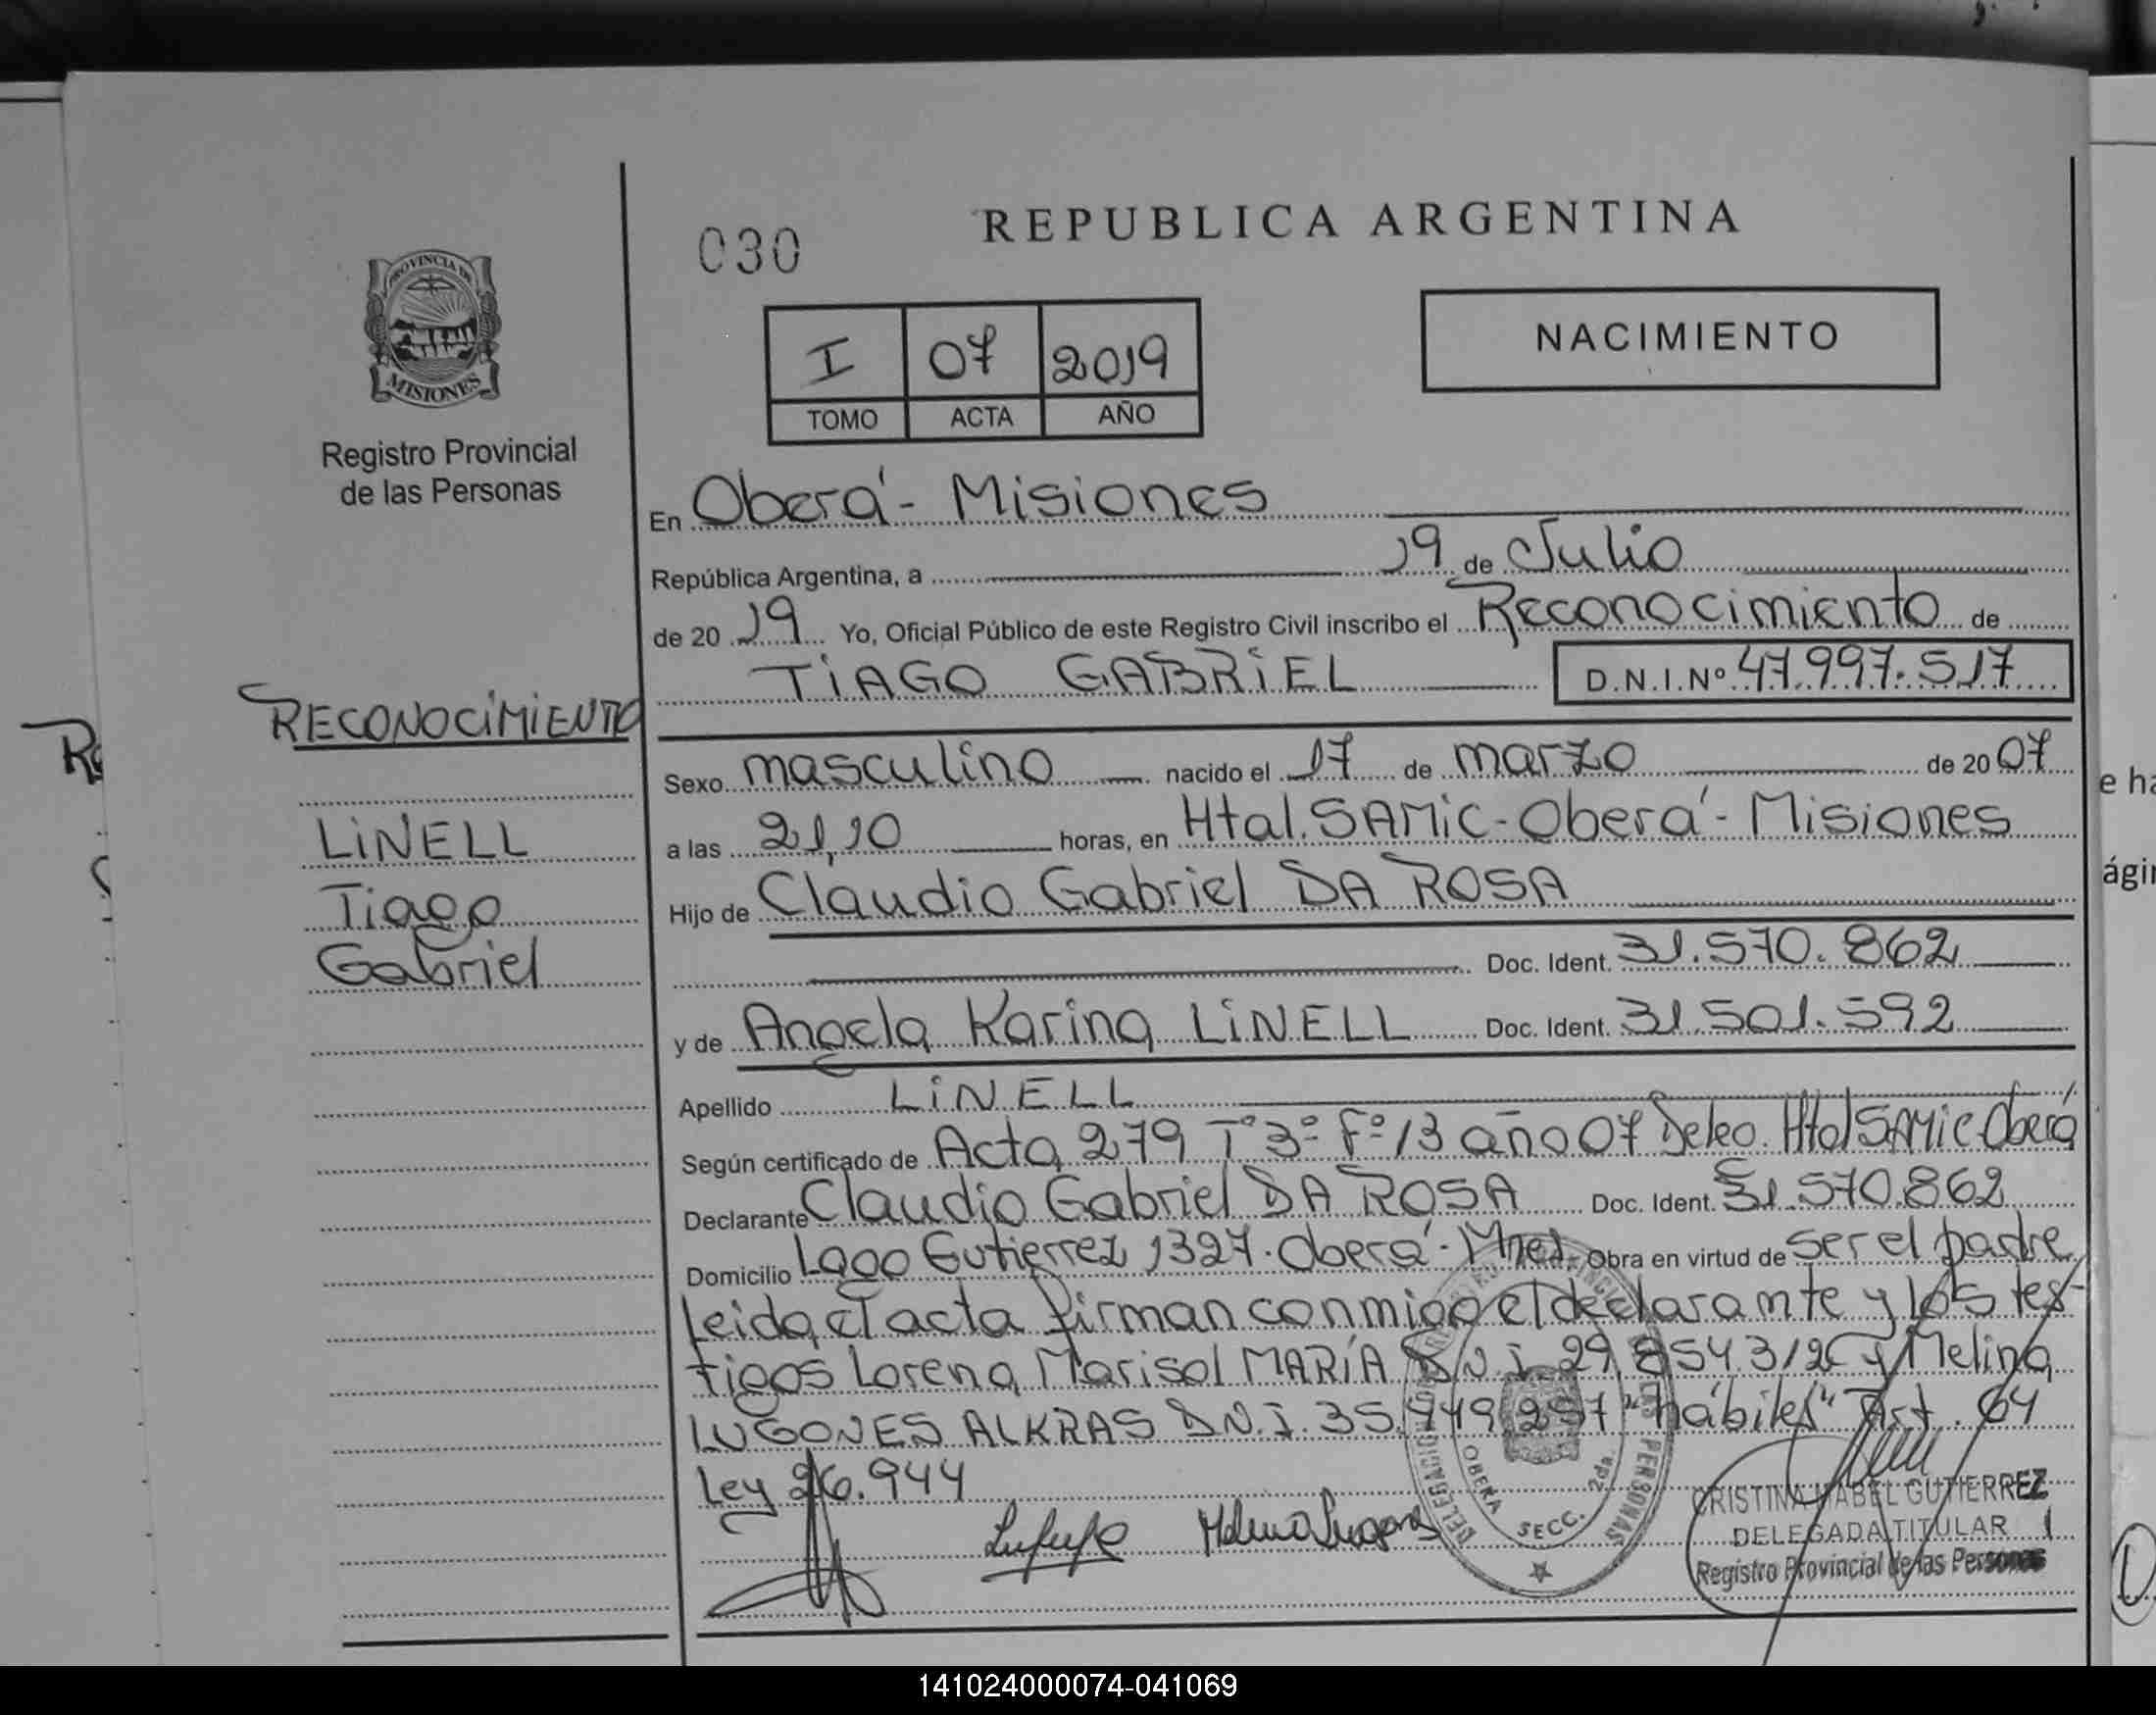 REPUBLICA ARGENTINA
030
NACIMIENTO
I 07 2019
TOMO ACTA AÑO
PROVINCIA DE
MISIONES
Registro Provincial
de las Personas
En Oberá - Misiones
República Argentina, a 19 de Julio
de 20 19 Yo, Oficial Público de este Registro Civil inscribo el Reconocimiento de
TiAGO GABRiEL D.N.I.Nº 47.997.517
RECONOCiMiENTO
LiNELL
Tiago
Gabriel
Sexo masculino nacido el 17 de marzo de 20 07
a las 21,10 horas, en Htal. SAMiC - Oberá - Misiones
Hijo de Claudio Gabriel DA ROSA
Doc. Ident. 31.570.862
y de Angela Karina LiNELL Doc. Ident. 31.501.592
Apellido LiNELL
Según certificado de Acta 279 Tº 3º Fº 13 año 07 Htal SAMiC Oberá
Declarante Claudio Gabriel DA ROSA Doc. Ident. 31.570.862
Domicilio Lago Gutierrez 1327. Oberá - Mnes. Obra en virtud de ser el padre
Leida el acta firman conmigo el declarante y los tes-
tigos Lorena Marisol MARÍA D.N.I. 29.854.312 y Melina
LUGONES ALKRAS D.N.I. 35. "hábiles" Art. 64
Ley 26.944
OBERA SECC. 2da.
CRISTINA MABEL GUTIERREZ
DELEGADA TITULAR
Registro Provincial de las Personas
e ha
ági
141024000074-041069